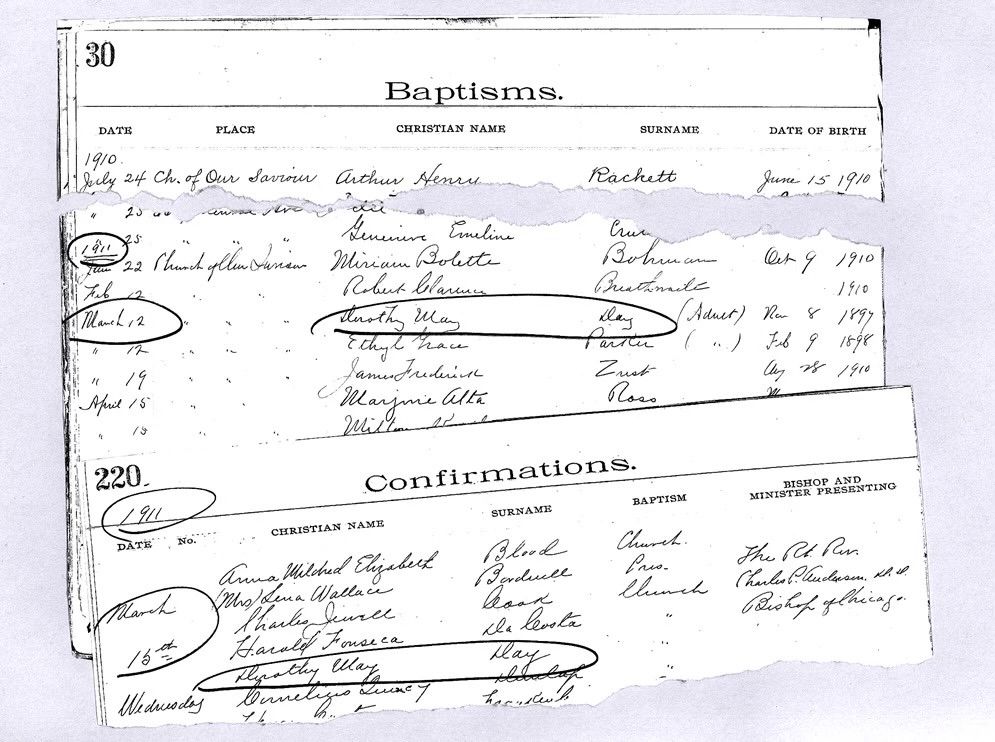 30
Baptisms.
DATE PLACE CHRISTIAN NAME SURNAME DATE OF BIRTH
1910.
July 24 Ch. of Our Saviour Arthur Henry Rackett June 15 1910
" 25
25 " " " Genevieve Emeline
1911
Jan 22 Church of Our Saviour Miriam Bolette Bohman Oct 9 1910
Feb 12 Robert Clarence 1910
March 12 " " " Dorothy May Day (Adult) Nov 8 1897
" 12 " " " Ethyl Grace Parker ( " ) Feb 9 1898
" 19 " " " James Frederick Zust Aug 28 1910
April 15 " " " Marjorie Alta Ross
"
220.
Confirmations.
1911
DATE No. CHRISTIAN NAME SURNAME BAPTISM BISHOP AND MINISTER PRESENTING
Anna Mildred Elizabeth Blood Church. The Rt. Rev.
(Mrs) Lena Wallace Bardwell Pres. Charles P. Anderson, D.D.
March Charles Jewell Cook Church Bishop of Chicago.
Harald Fonseca Da Costa "
15th Dorothy May Day "
Wednesday Cornelius Quincy Dunlap